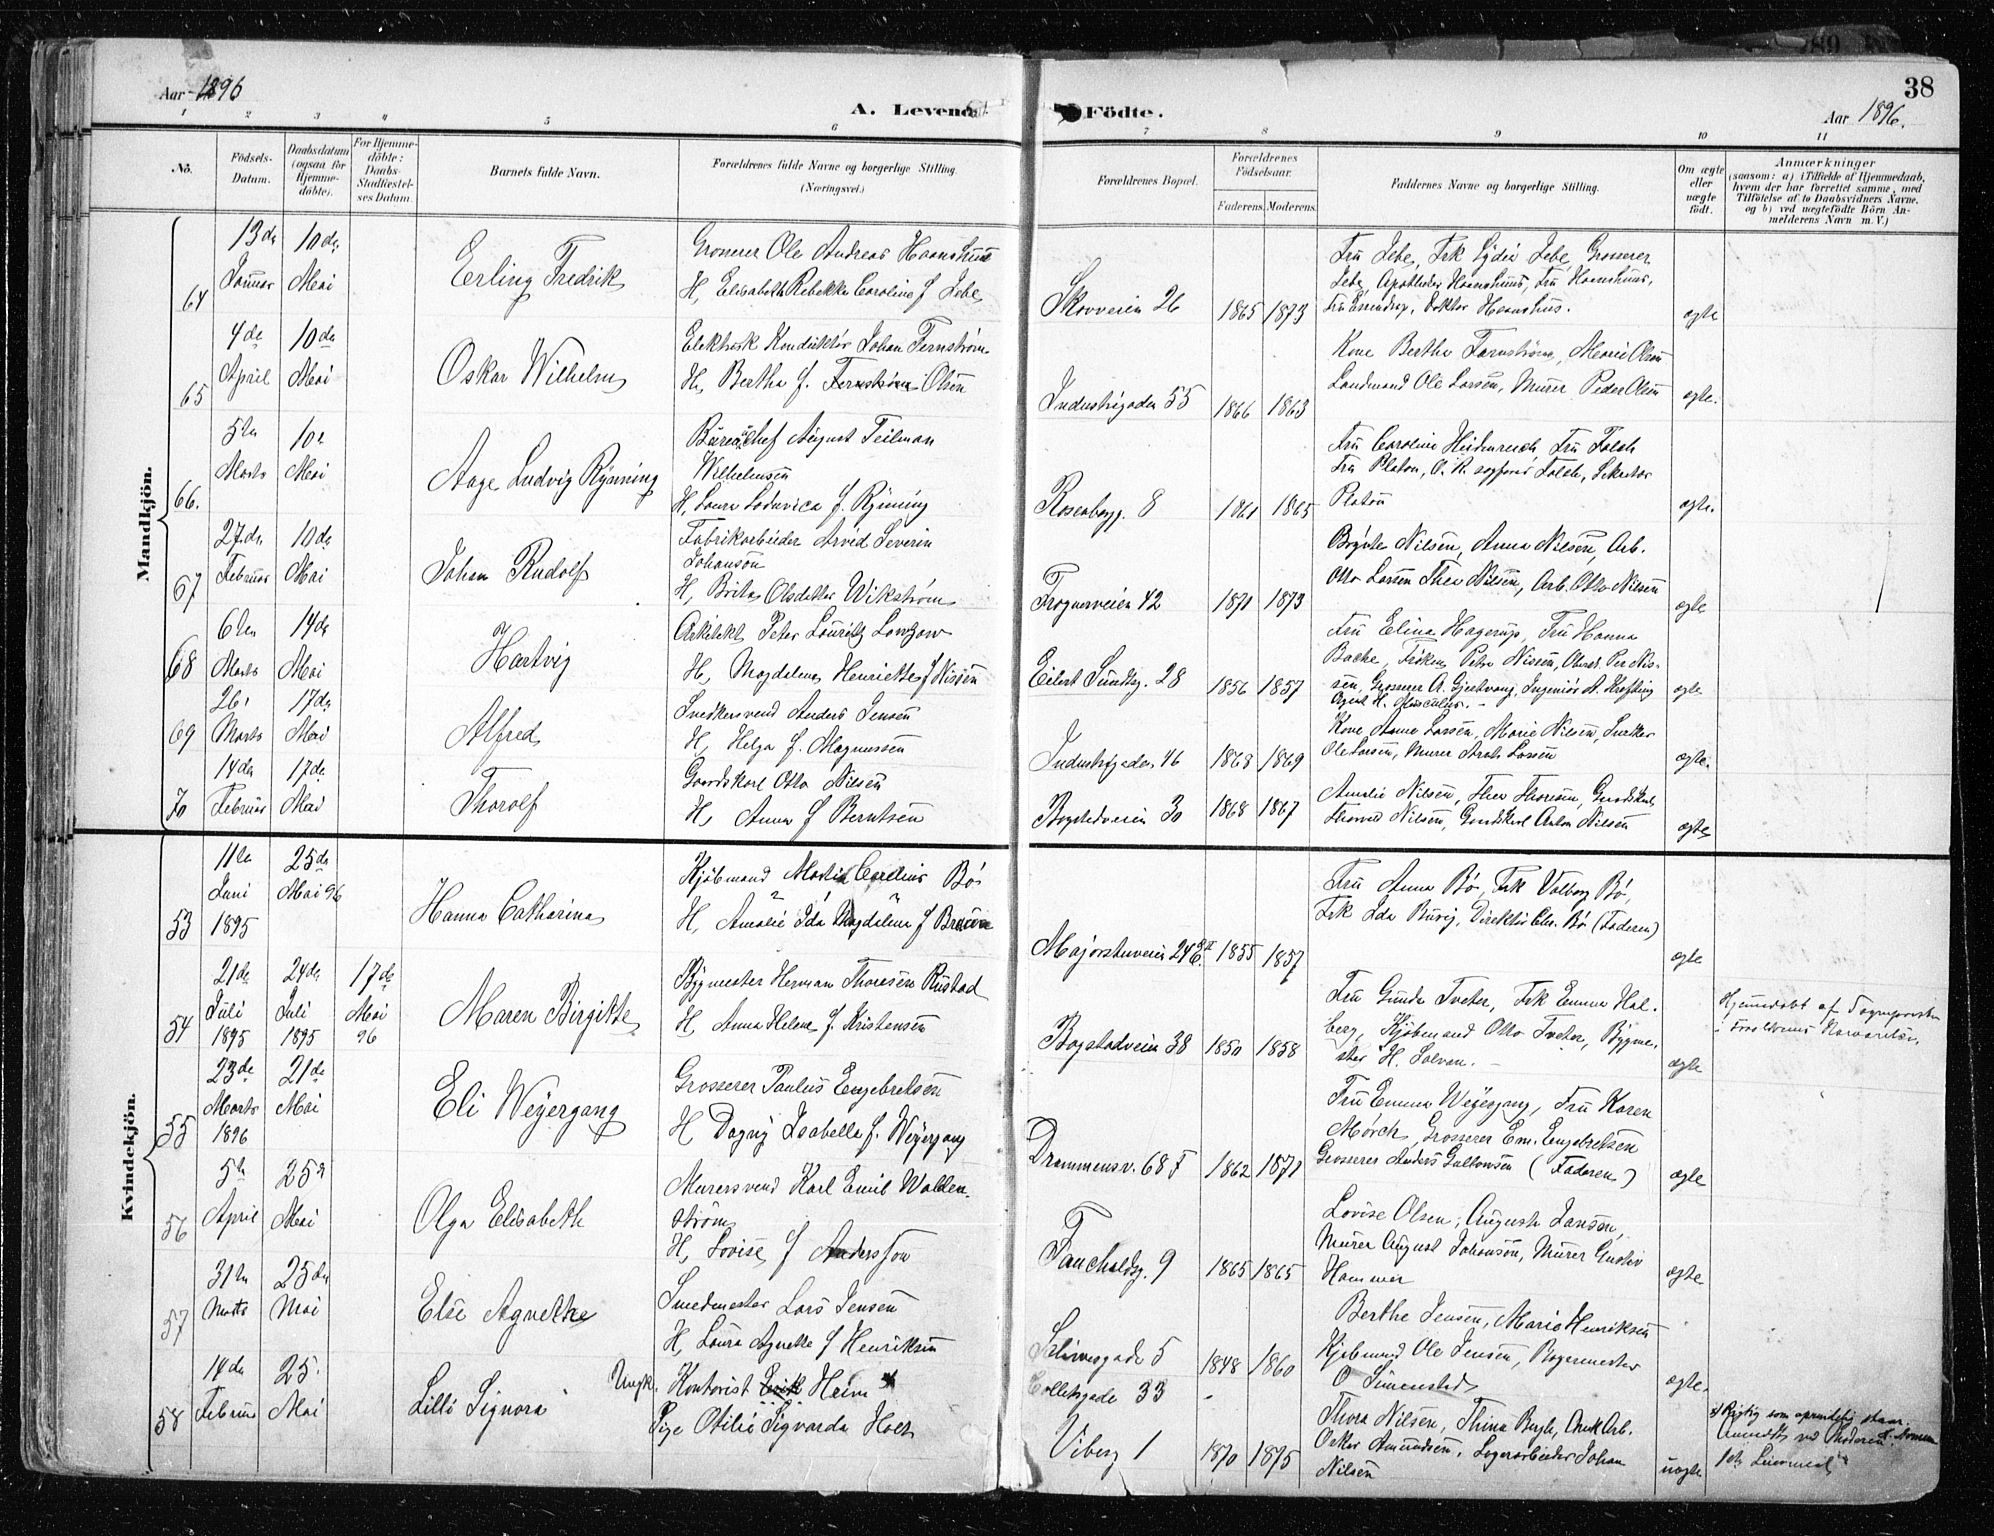 38
Aar 1896
A. Levende
Födte.
Aar 1896.
1 2 3 4 5 6 7 8 9 10 11
No.
Födsels-
Datum.
Daabsdatum
(ogsaa for
Hjemme-
döbte).
For Hjemme-
döbte:
Daabs-
Stadfæstel-
ses Datum.
Barnets fulde Navn.
Forældrenes fulde Navne og borgerlige Stilling.
(Næringsvei.)
Forældrenes Bopæl.
Forældrenes
Födselsaar.
Faderens. Moderens.
Faddernes Navne og borgerlige Stilling.
Om ægte
eller
uægte
födt.
Anmærkninger
(saasom: a) i Tilfælde af Hjemmedaab,
hvem der har forrettet samme, med
Tilföielse af to Daabsvidners Navne,
og b) ved uægtefödte Börn An-
melderens Navn m. V.)
Mandkjön.
64
13de
Januar
10de
Mai
Erling Fredrik
Grosserer Ole Andreas Haanshuus
H, Elisabeth Rebekka Caroline f Jebe
Skovveien 26
1865 1873
Fru Jebe, Frk Jebe, Grosserer
Jebe, Apotheker Haanshuus, Fru Haanshuus,
Doktor Haanshus.
ægte
65
4de
April
10de
Mai
Oskar Wilhelm
Elektrisk Konduktör Johan Fernström
H, Bertha f. Fernström Olsen
Industrigaden 55
1866 1863
Kone Bertha Farnström, Marie Olsen
Landmand Ole Larsen, Murer Peder Olsen
ægte.
66.
5te
Marts
10de
Mai
Aage Ludvig Rynning
Bureauchef August Teilman
Wilhelmsen
H, Laura Lodovica f. Rynning
Rosenborgg. 8
1860 1865
Fru Caroline Heidenreich Fru Falch
Fru Platou, O. R. sagförer Falch, Sekretær
Platou
ægte.
67
27de
Februar
10de
Mai
Johan Rudolf
Fabrikarbeider Arvid Severin
Johanson
H, Brita Olsdatter Wikström
Frognerveien 42
1871 1873
Nilsen, Anna Nilsen, Arb.
Otto Larsen Thea Nilsen, Arb. Otto Nilsen
ægte
68
6te
Marts
14de
Mai
Hartvig
Arkitekt Peter Lauritz Lowzow
H, Magdalena Henriette f Nissen
Eilert Sundtsg. 28
1856 1857
Fru Elina Hagerup, Fru Hanna
Backe, Fröken Petra Nissen, Oberst. Per Nis-
sen, Grosserer A. Gjestvang, Ingeniör A. Krefting
ægte
69
26.
Marts
17de
Mai
Alfred
Snedkersvend Anders Jensen
H, Helga f. Magnussen
Industrigaden 46
1868 1869
Kone Anna Larsen, Marie Nilsen, Snekker
Ole Larsen, Murer Larsen
ægte.
70
14de
Februar
17de
Mai
Thorolf
Gaardskarl Otto Nilsen
H, Anna f Berntsen
Bogstadveien 30
1868 1867
Amalie Nilsen, Thea Thoresen, Gaardskarl
Nilsen, Gaardskarl Anton Nilsen
ægte
Kvindekjön.
53
11te
Juni
1895
25de
Mai 96
Hanna Catharina
Kjöbmand Martin Cornelius Bö
H, Amalie Ida Magdalena f Braun
Majorstuveien 24 II
1855 1857
Fru Anna Bö, Frk Valborg Bö,
Frk Ida Direktör Chr. Bö (Faderen)
ægte
54
21de
Juli
1895
24de
Juli
1895
17de
Mai
96
Maren Birgitte
Bygmester Herman Thoresen Rustad
H, Anna Helene f. Kristensen
Bogstadveien 38
1850 1858
Fru Gunda Tveter, Frk Emma Hal-
berg, Kjöbmand Otto Tveter, Bygme-
ster H. Solvan.
ægte
Hjemmedöbt af Sognepresten
i Forældrenes Nærværelse.
55
23de
Marts
1896
21de
Mai
Eli Weyergang
Grosserer Paulus Engebretsen
H Dagny Isabella f. Weyergang
Drammensv. 68 F
1862 1871
Fru Emma Weyergang, Fru Karen
Mörch, Grosserer Em. Engebretsen
Grosserer Anders Gulbransen (Faderen)
ægte
56
5te
April
25de
Mai
Olga Elisabeth
Murersvend Karl Emil Wallen-
ström
H, Lovise f Andersson
Fauchaldsg. 9
1865 1865
Lovise Olsen, Augusta Jansen,
Murer August Johanson, Murer Gustav
Hammer
ægte
57
31te
Marts
25de
Mai
Elie Agnethe
Smedmester Lars Jensen
H, Laura Agnethe f Henriksen
Schivesgade 5
1848 1860
Berthe Jensen, Marie Henriksen
Kjöbmand Ole Jensen, Bagermester
O Simenstad
ægte.
58
14de
Februar
25.
Mai
Lilli Signora
Ungk. Kontorist Erik Heim
Pige Otilie Sigvarda Holt
Colletsgade 33
Vibesg 1
1870 1875
Thora Nilsen, Thina Bergh, Arb.
Oskar Amundsen, Lagerarbeider Johan
Nilsen
uægte
x) Rigtig som oprindelig staar.
Anmeldt ved Moderen.